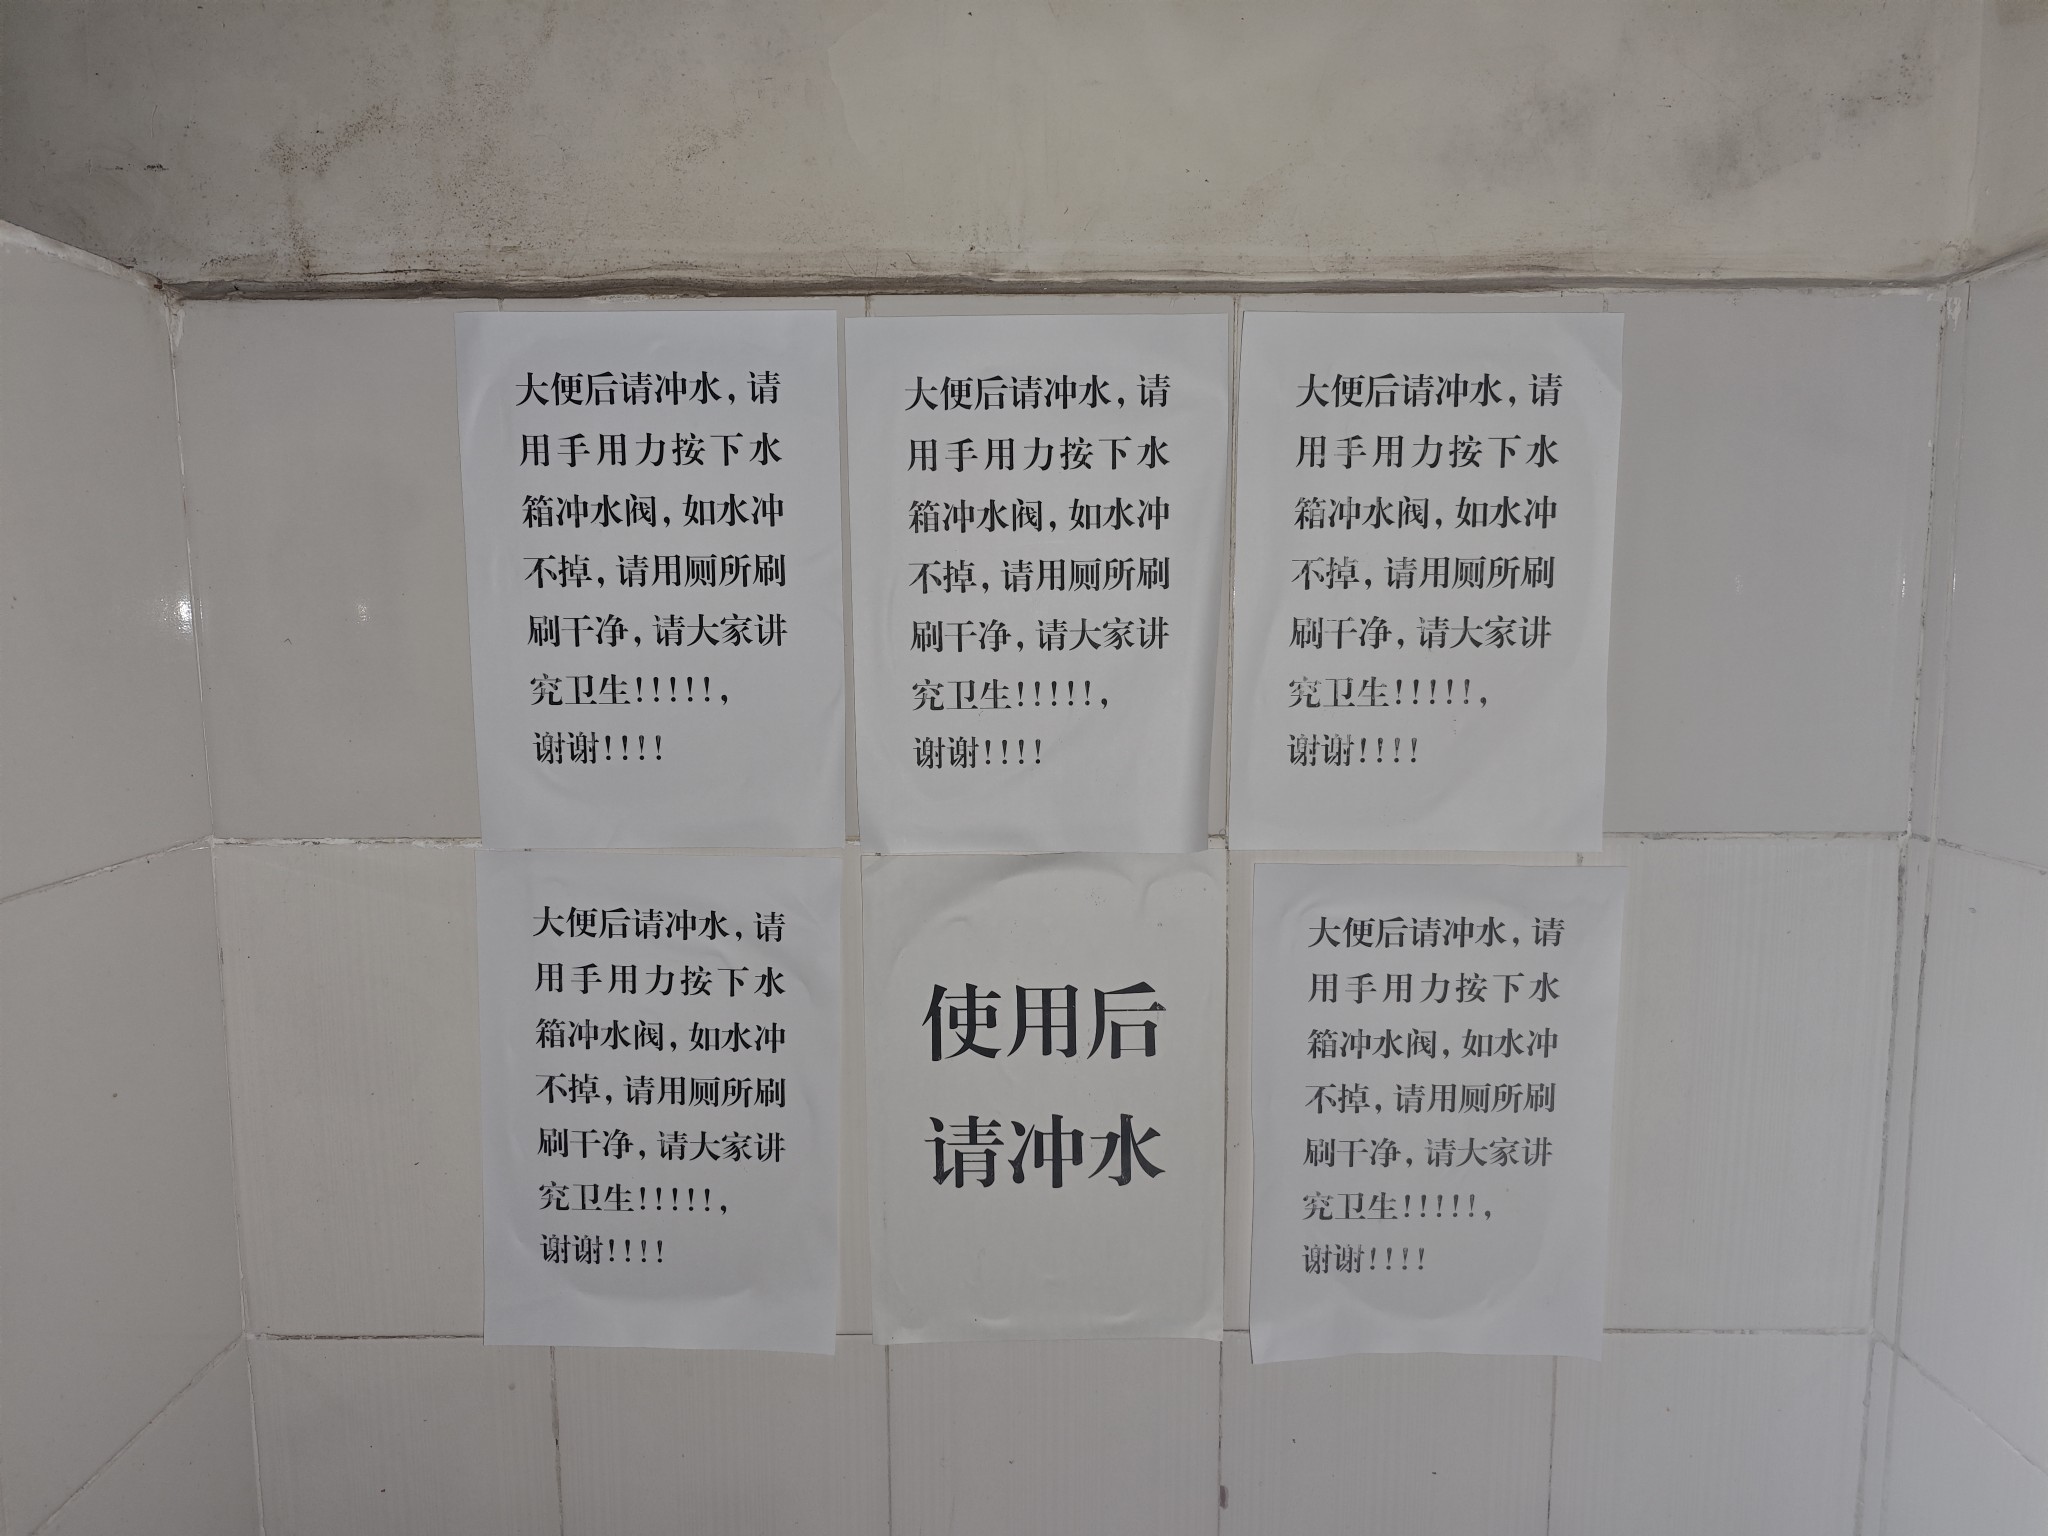 大便后请冲水，请
用手用力按下水
箱冲水阀，如水冲
不掉，请用厕所刷
刷干净，请大家讲
究卫生！！！！！，
谢谢！！！！
大便后请冲水，请
用手用力按下水
箱冲水阀，如水冲
不掉，请用厕所刷
刷干净，请大家讲
究卫生！！！！！，
谢谢！！！！
大便后请冲水，请
用手用力按下水
箱冲水阀，如水冲
不掉，请用厕所刷
刷干净，请大家讲
究卫生！！！！！，
谢谢！！！！
大便后请冲水，请
用手用力按下水
箱冲水阀，如水冲
不掉，请用厕所刷
刷干净，请大家讲
究卫生！！！！！，
谢谢！！！！
使用后
请冲水
大便后请冲水，请
用手用力按下水
箱冲水阀，如水冲
不掉，请用厕所刷
刷干净，请大家讲
究卫生！！！！！，
谢谢！！！！